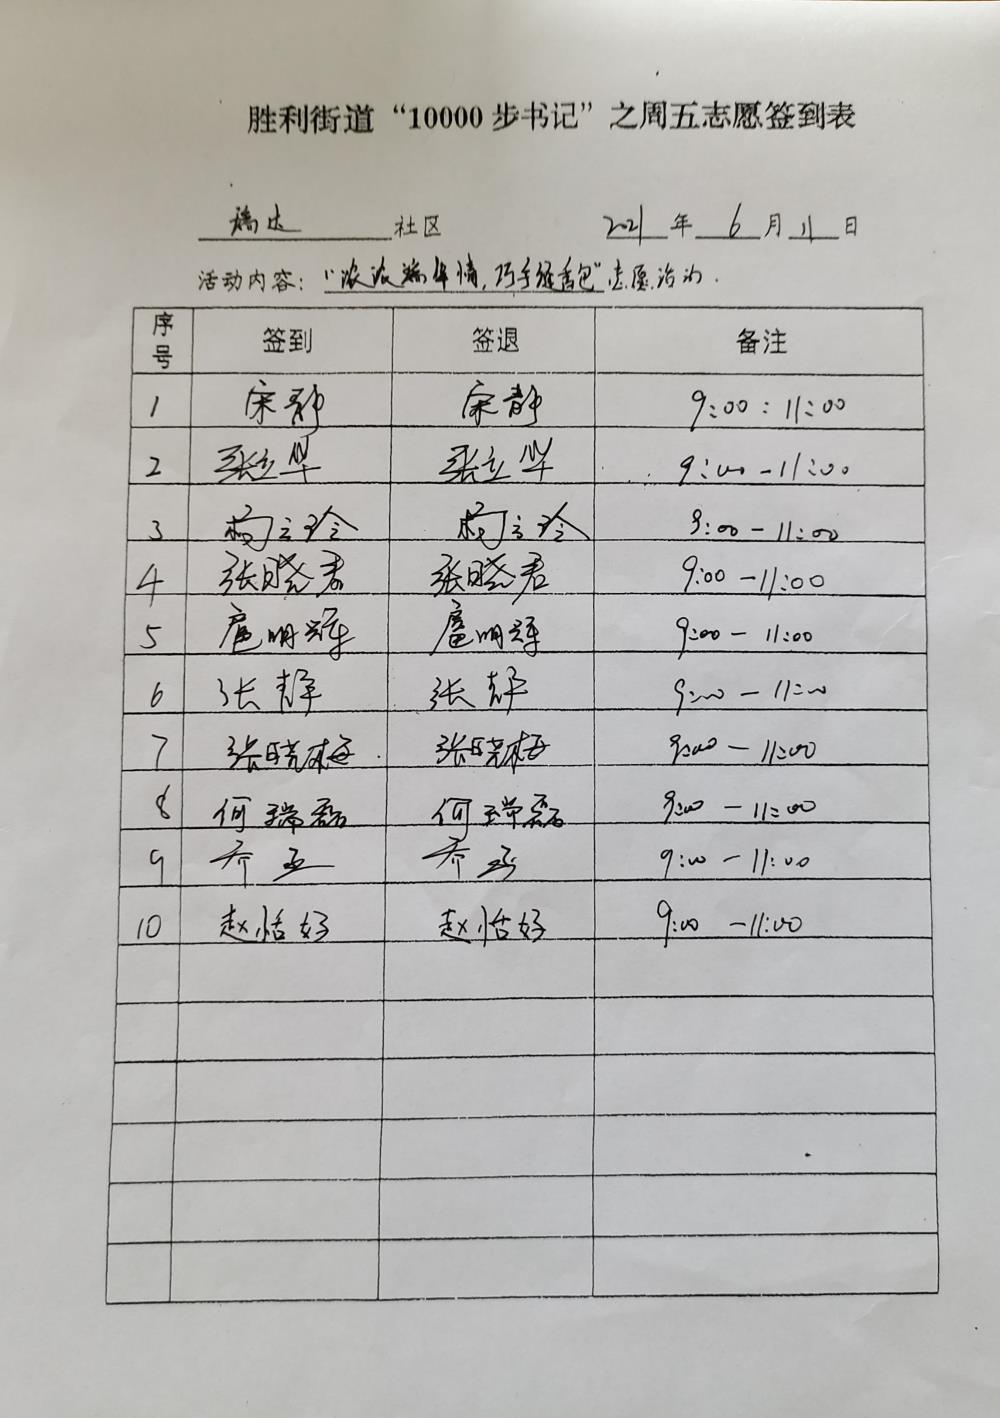 胜利街道“10000步书记”之周五志愿签到表
瑞达 社区 2021 年 6 月 11 日
活动内容：“浓浓端午情，巧手缝香包”志愿活动.
序号 签到 签退 备注
1 宋静 宋静 9:00:11:00
2 张立华 张立华 9:00-11:00
3 杨立玲 杨立玲 9:00-11:00
4 张晓君 张晓君 9:00-11:00
5 扈明辉 扈明辉 9:00-11:00
6 张静 张静 9:00-11:00
7 张晓梅 张晓梅 9:00-11:00
8 何瑞磊 何瑞磊 9:00-11:00
9 乔 乔 9:00-11:00
10 赵恬好 赵恬好 9:00-11:00